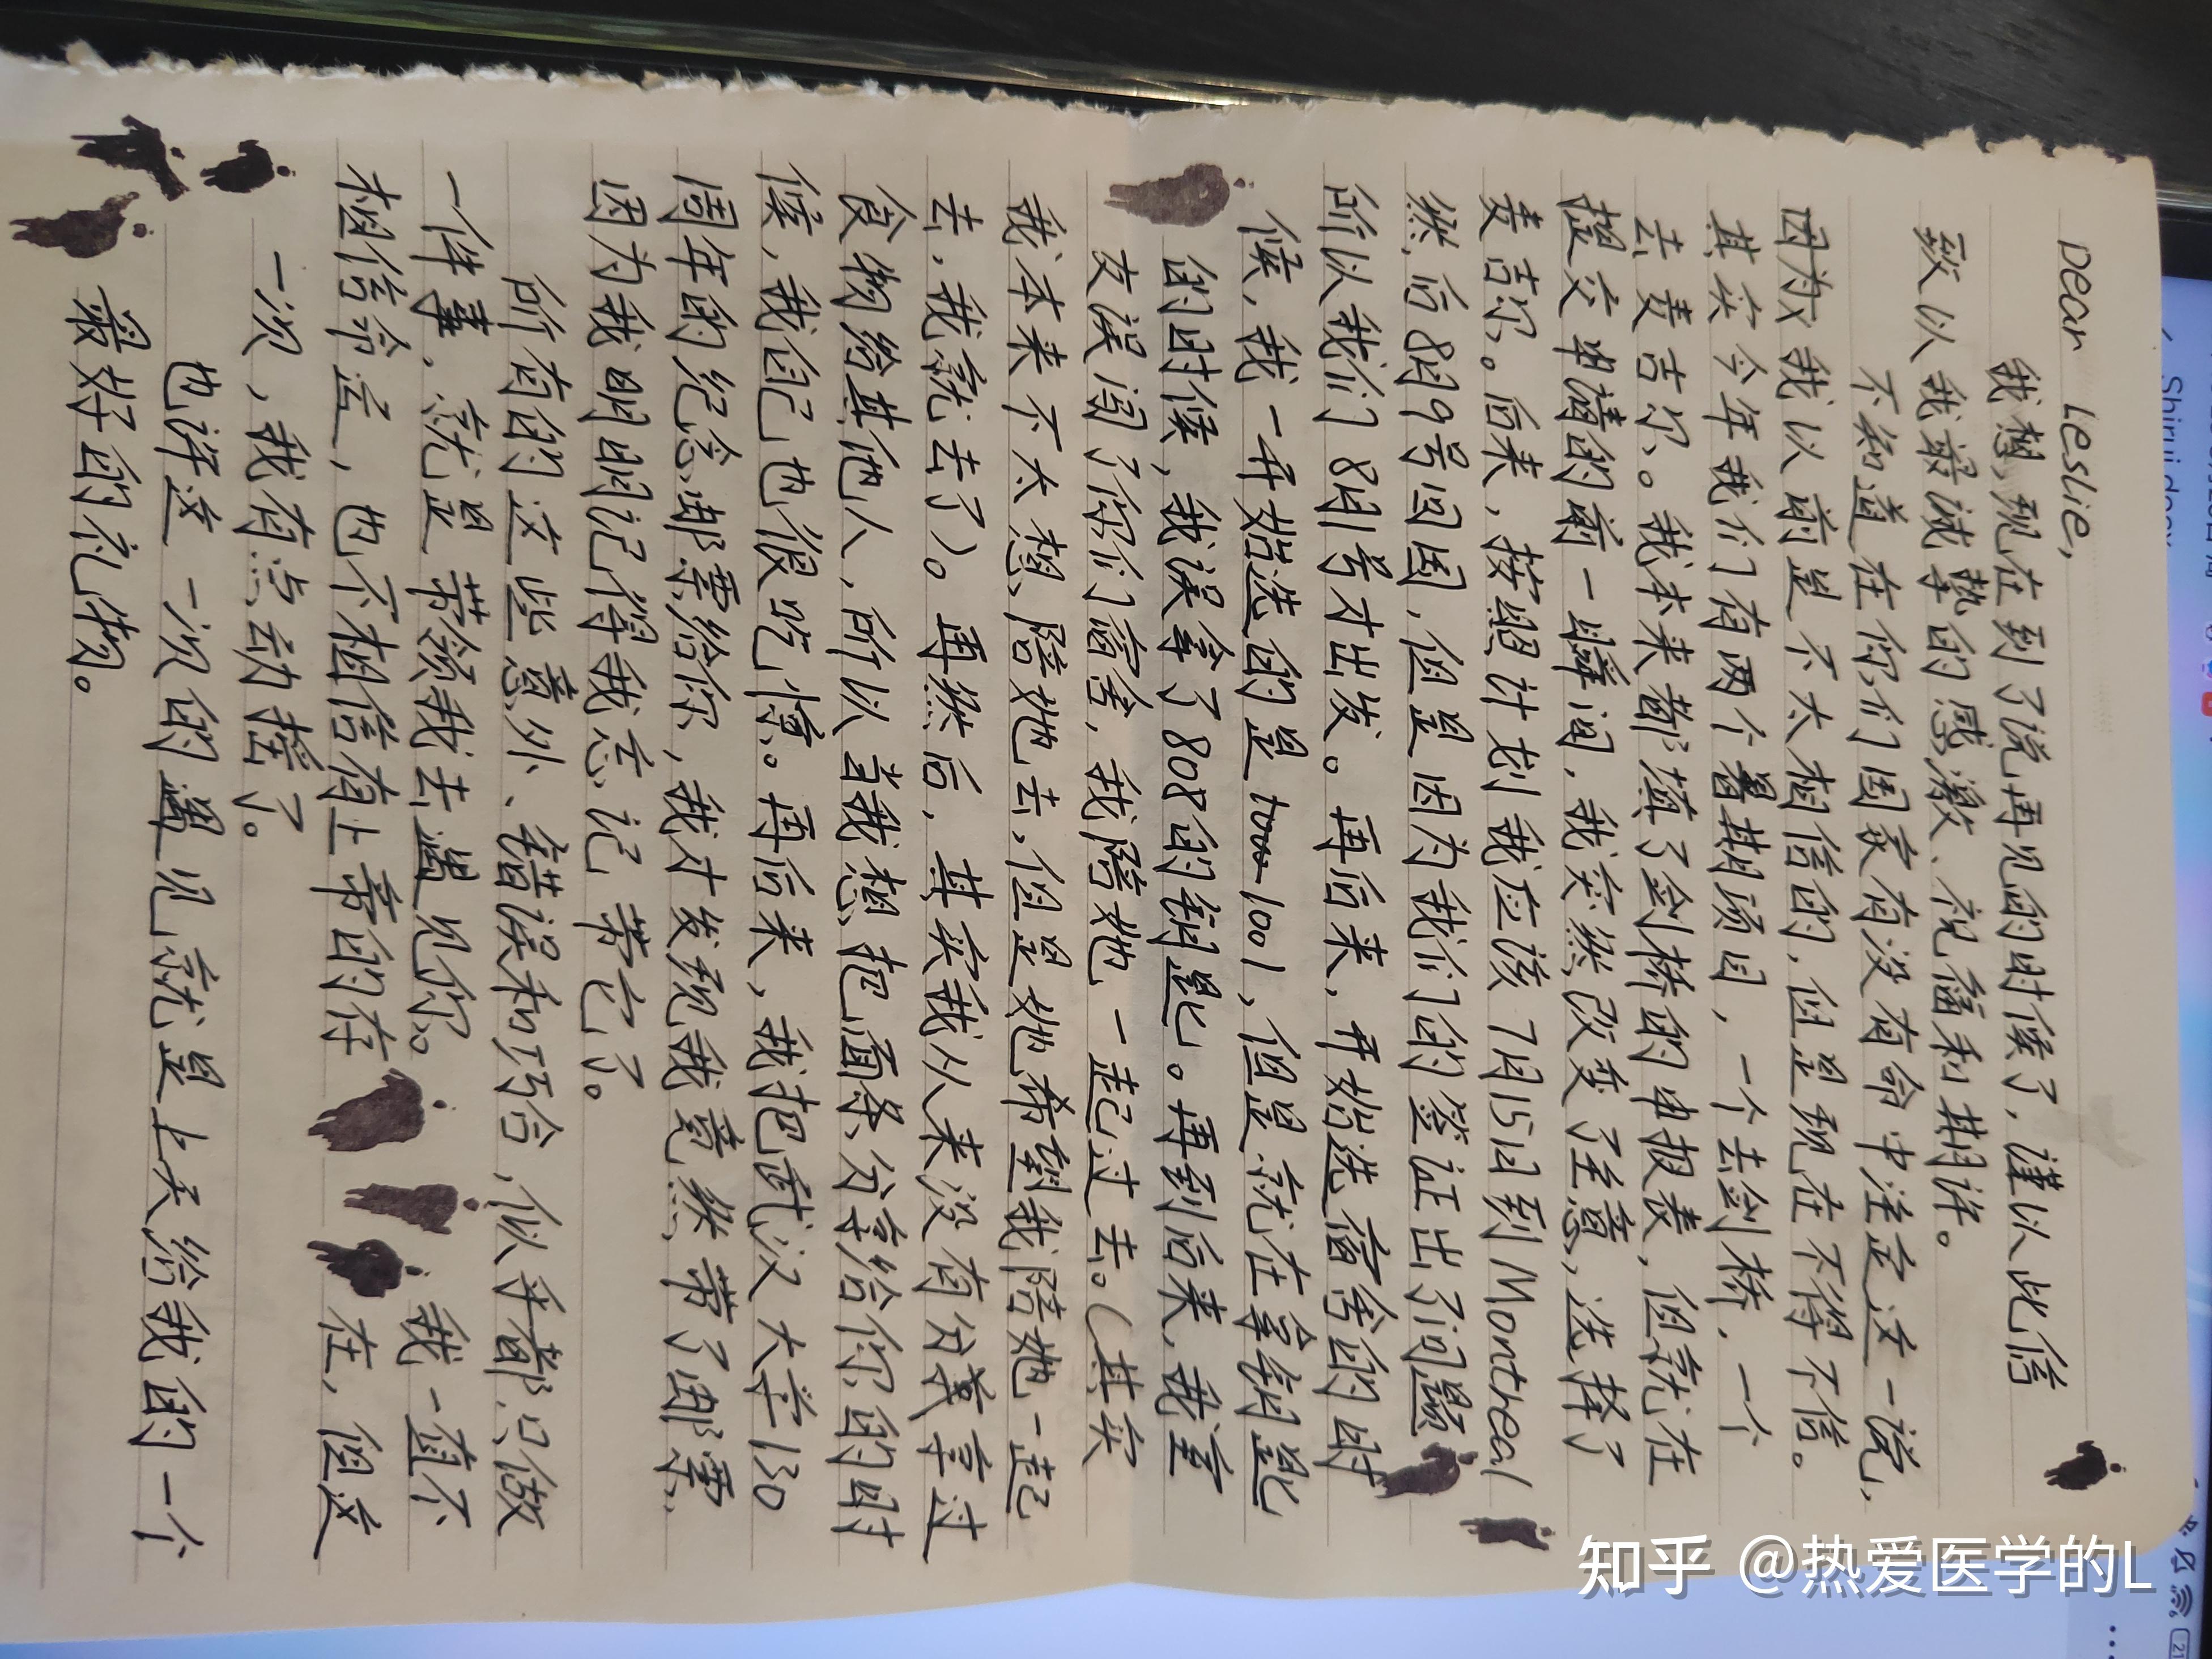 Dear Leslie,
我想,现在到了说再见的时候了,谨以此信
致以我最诚挚的感激、祝福和期许。
不知道在你们国家有没有命中注定这一说,
因为我以前是不太相信的,但是现在不得不信。
其实今年我们有两个暑期项目,一个去剑桥,一个
去麦吉尔。我本来都填了剑桥的申报表,但就在
提交申请的前一瞬间,我突然改变了主意,选择了
麦吉尔。后来,按照计划我应该7月15日到Montreal
然后8月9号回国,但是因为我们的签证出了问题
所以我们8月1号才出发。再后来,开始选宿舍的时
候,我一开始选的是 1001,但是就在拿钥匙
的时候,我误拿了808的钥匙。再到后来,我室
友误闯了你们宿舍,我陪她一起过去。(其实
我本来不太想陪她去,但是她希望我陪她一起
去,我就去了)。再然后,其实我从来没有分享过
食物给其他人,所以当我想把面条分享给你的时
候,我自己也很吃惊。再后来,我把武汉大学130
周年的纪念邮票给你,我才发现我竟然带了邮票,
因为我明明记得我忘记带它了。
所有的这些意外、错误和巧合,似乎都只做
一件事,就是带领我去遇见你。 我一直不
相信命运,也不相信有上帝的存 在,但这
一次,我有点动摇了。
也许这一次的遇见就是上天给我的一个
最好的礼物。
Shirui.docx
知乎 @热爱医学的L